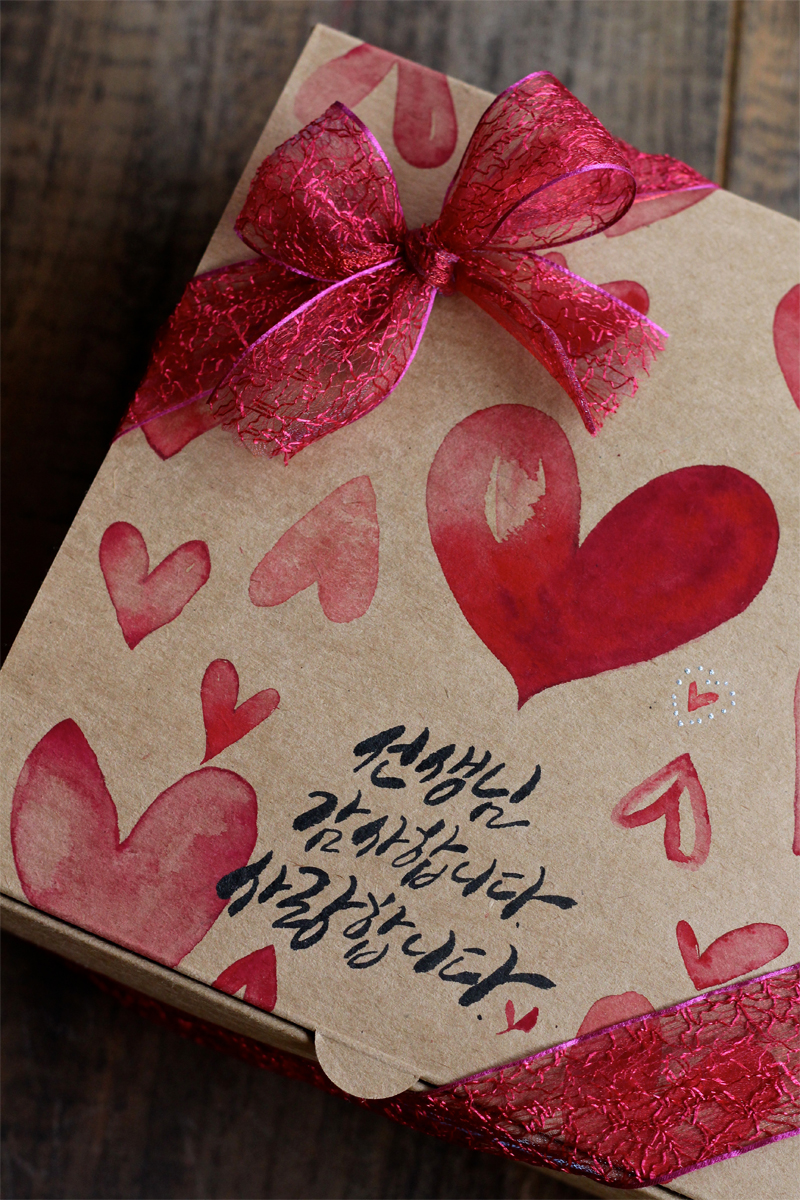 선생님
감사합니다.
사랑합니다.